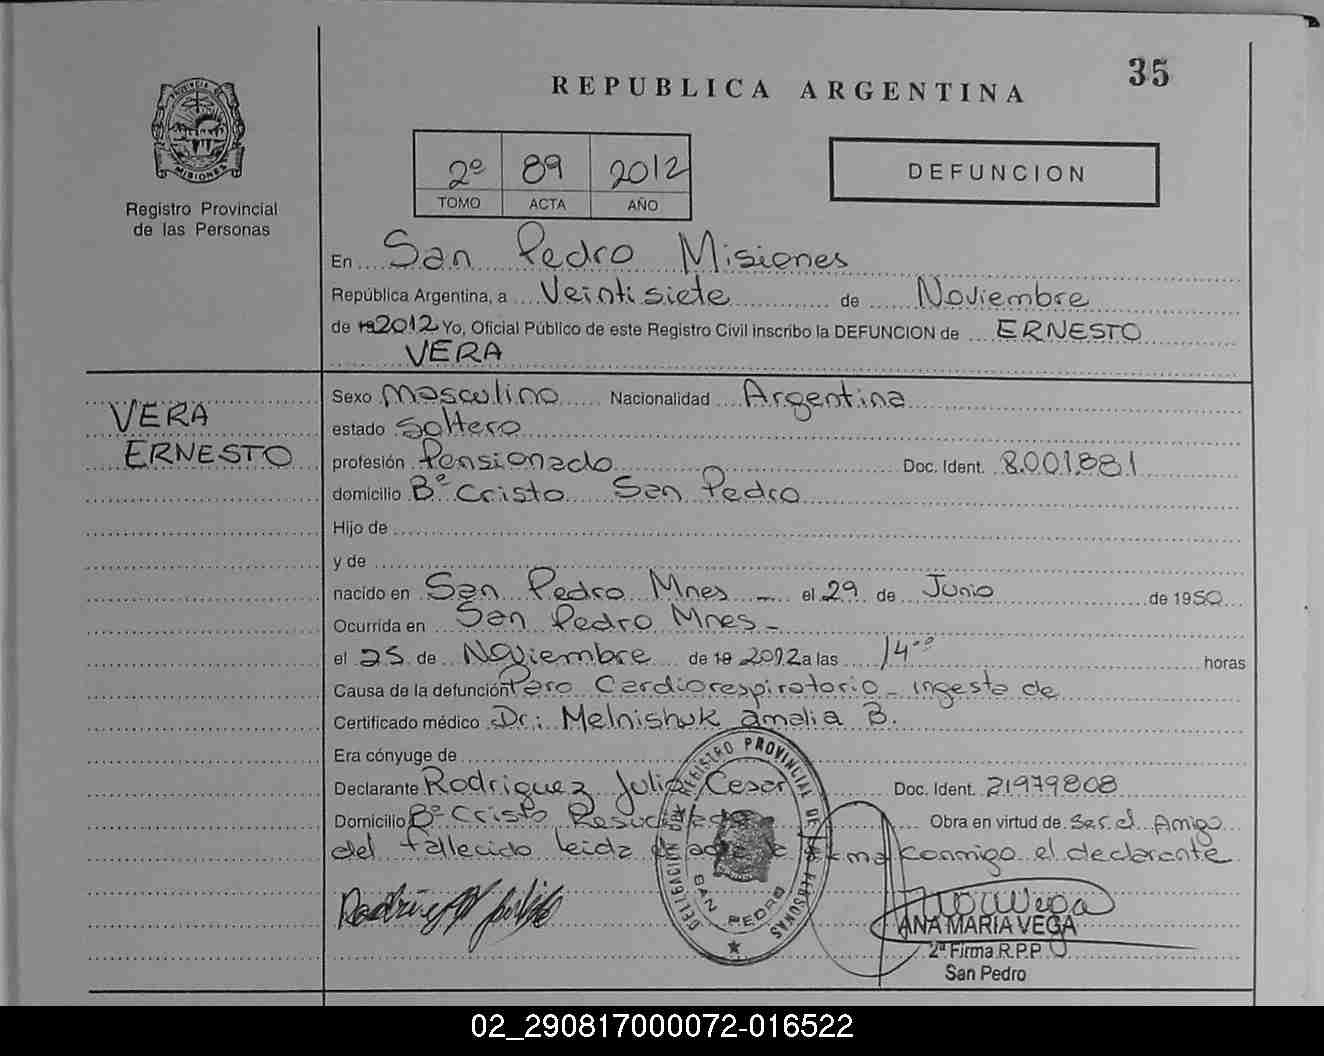 35
REPUBLICA ARGENTINA
PROVINCIA DE
MISIONES
Registro Provincial
de las Personas
2º 89 2012
TOMO ACTA AÑO
DEFUNCION
En San Pedro Misiones
República Argentina, a Veintisiete de Noviembre
de 19 2012 Yo, Oficial Público de este Registro Civil inscribo la DEFUNCION de ERNESTO
VERA
VERA
ERNESTO
Sexo Masculino Nacionalidad Argentina
estado Soltero
profesión Pensionado Doc. Ident. 8.001.881
domicilio Bº Cristo San Pedro
Hijo de
y de
nacido en San Pedro Mnes - el 29 de Junio de 1950
Ocurrida en San Pedro Mnes -
el 25 de Noviembre de 19 2012 a las 14.00 horas
Causa de la defunción Paro Cardiorespiratorio - ingesta de
Certificado médico Dr: Melnishuk amalia B.
Era cónyuge de
Declarante Rodriguez Julio Cesar Doc. Ident. 21979808
Domicilio Bº Cristo Resucitado Obra en virtud de Ser el Amigo
del fallecido leida el acta la firma conmigo el declarante
DELEGACION DEL REGISTRO PROVINCIAL DE LAS PERSONAS
SAN PEDRO
Rodriguez Julio
ANA MARIA VEGA
2ª Firma R.P.P.
San Pedro
02_290817000072-016522